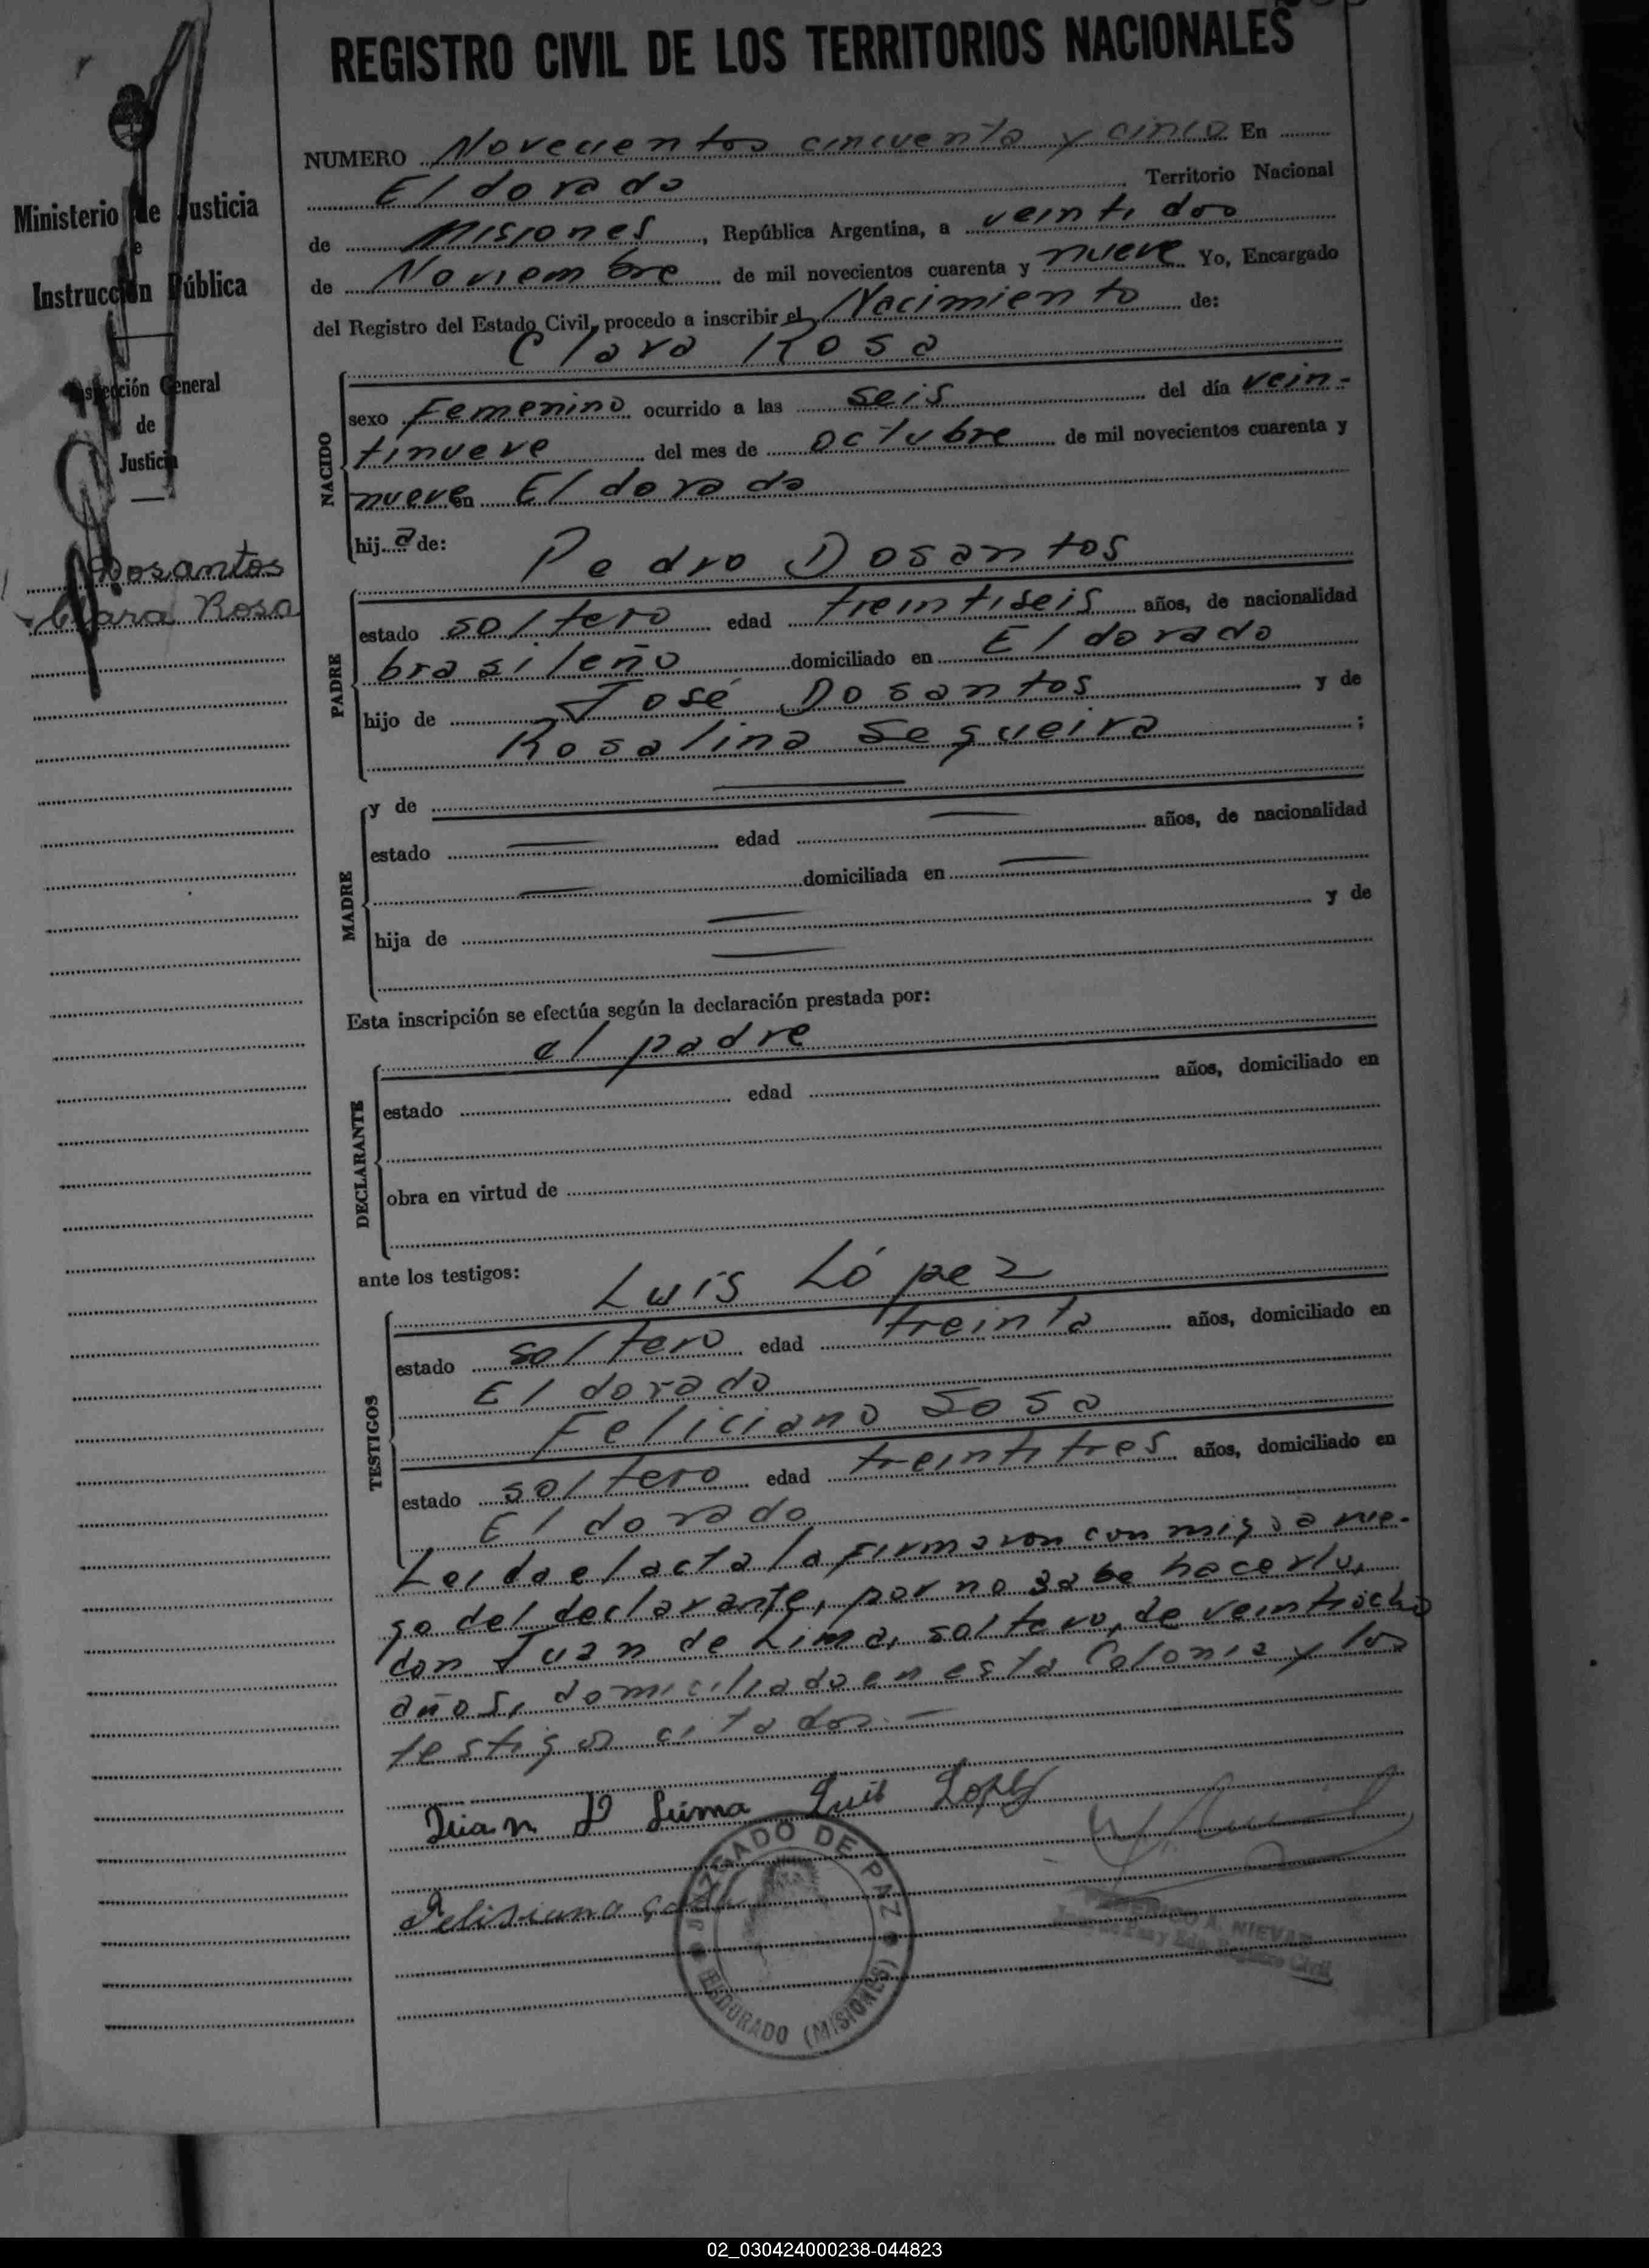 REGISTRO CIVIL DE LOS TERRITORIOS NACIONALES
Ministerio de Justicia
e
Instrucción Pública
Inspección General
de
Justicia
Dosantos
Clara Rosa
NUMERO Novecientos cincuenta y cinco En
El dorado Territorio Nacional
de Misiones, República Argentina, a veinti dos
de Noviembre de mil novecientos cuarenta y nueve Yo, Encargado
del Registro del Estado Civil, procedo a inscribir el Nacimiento de:
Clara Rosa
NACIDO
sexo Femenino ocurrido a las seis del día vein-
tinueve del mes de octubre de mil novecientos cuarenta y
nueve en El dorado
hija de:
Pedro Dosantos
PADRE
estado soltero edad treintiseis años, de nacionalidad
brasileño domiciliado en El dorado
hijo de José Dosantos y de
Rosalina Segueira;
MADRE
y de
estado edad años, de nacionalidad
domiciliada en
hija de y de
Esta inscripción se efectúa según la declaración prestada por:
el padre
DECLARANTE
estado edad años, domiciliado en
obra en virtud de
ante los testigos:
Luis López
TESTIGOS
estado soltero edad treinta años, domiciliado en
El dorado
Feliciano Sosa
estado soltero edad treintitres años, domiciliado en
El dorado
Leida el acta la firmaron conmigo a rue-
go del declarante, por no sabe hacerlo,
don Juan de Lima, soltero, de veintiocho
años, domiciliado en esta Colonia y los
testigos citados.—
Juan D Lima Luis Lopez
Felisiano
JUZGADO DE PAZ
ELDORADO (MISIONES)
A. NIEVAS
Juez de Paz y Edo. Registro Civil
02_030424000238-044823